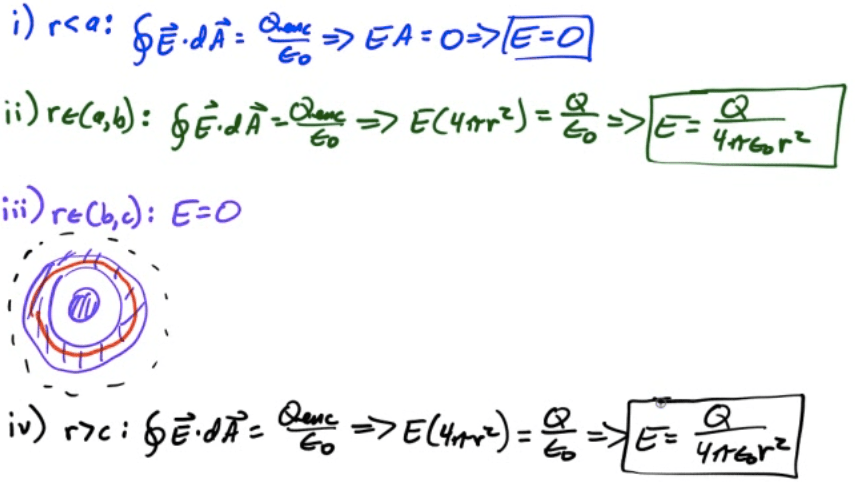 i) r<a: ∮E⃗·dA⃗ = Qenc/ε₀ => EA = 0 => E = 0
ii) r∈(a,b): ∮E⃗·dA⃗ = Qenc/ε₀ => E(4πr²) = Q/ε₀ => E = Q/4πε₀r²
iii) r∈(b,c): E = 0
iv) r>c: ∮E⃗·dA⃗ = Qenc/ε₀ => E(4πr²) = Q/ε₀ => E = Q/4πε₀r²